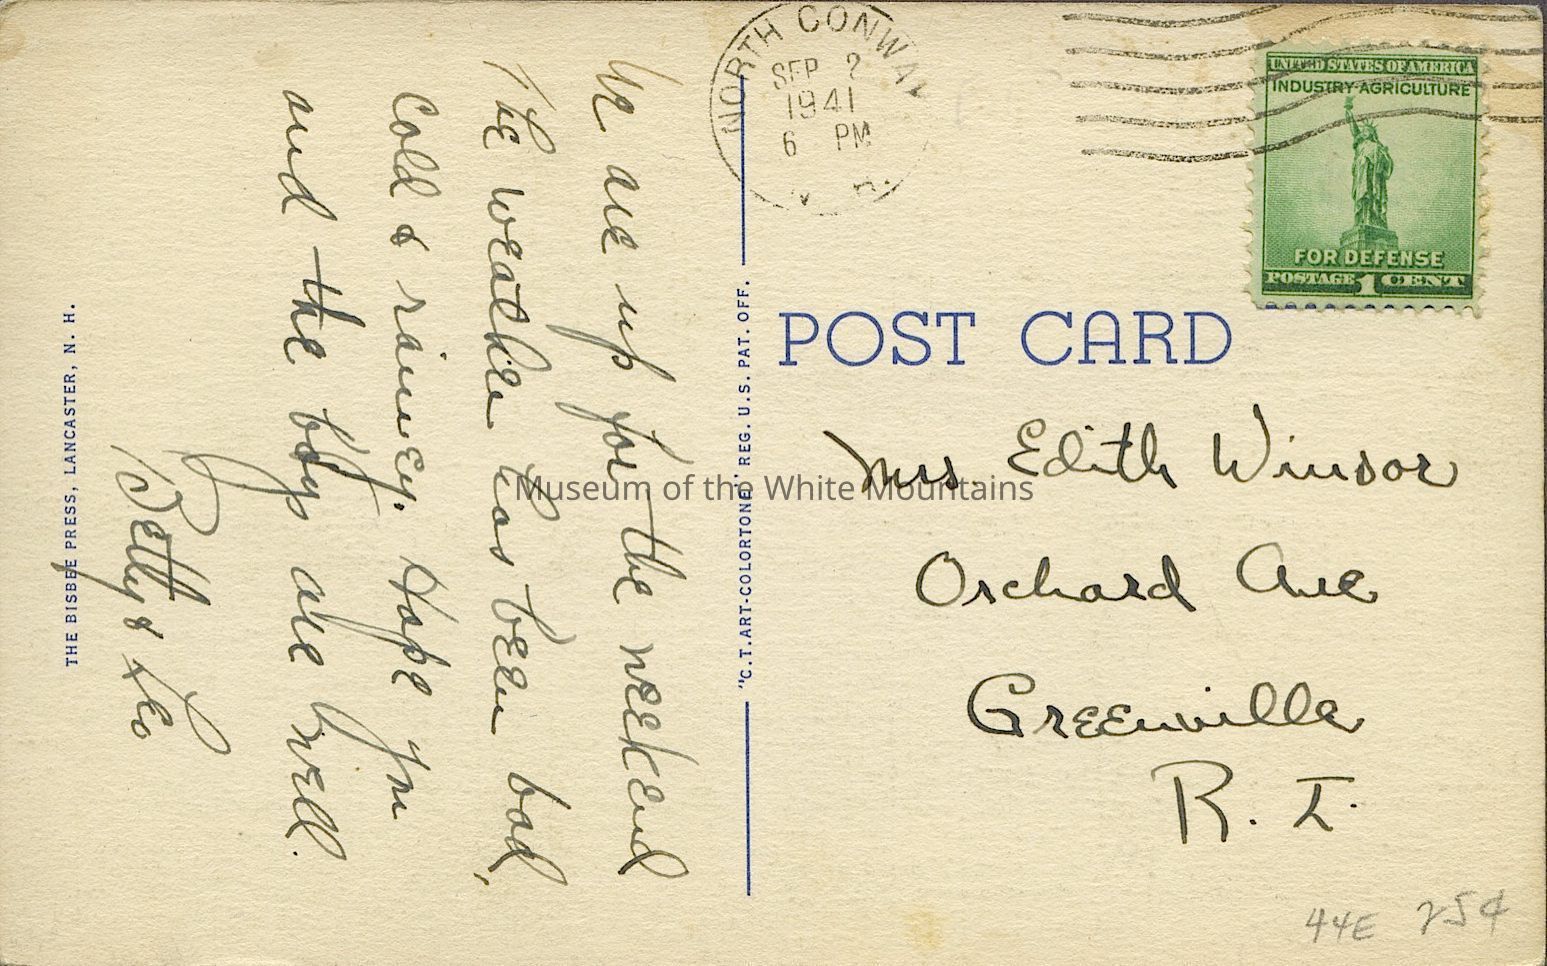 We are up for the weekend
The weather has been bad,
cold & rainey. Hope you
and the boy are well.
Betty & Leo
THE BISBEE PRESS, LANCASTER, N. H.
"C.T. ART-COLORTONE" REG. U.S. PAT. OFF.
NORTH CONWAY
SEP 2
1941
6 PM
N. H.
UNITED STATES OF AMERICA
INDUSTRY-AGRICULTURE
FOR DEFENSE
POSTAGE 1 CENT
POST CARD
Mrs. Edith Winsor
Orchard Ave
Greenville
R. I.
44E 25¢
Museum of the White Mountains